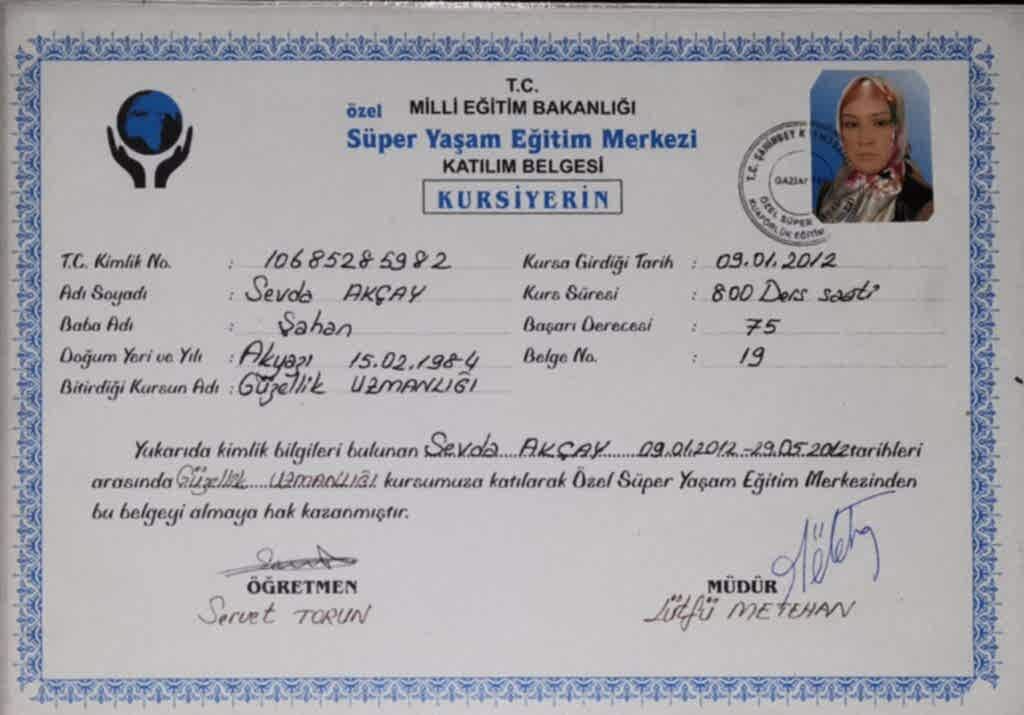 T.C.
özel MİLLİ EĞİTİM BAKANLIĞI
Süper Yaşam Eğitim Merkezi
KATILIM BELGESİ
KURSİYERİN
T.C. ŞAHİNBEY
GAZİAN
ÖZEL SÜPER
KUAFÖRLÜK EĞİTİM
T.C. Kimlik No. : 10685285982
Adı Soyadı : Sevda AKÇAY
Baba Adı : Şahan
Doğum Yeri ve Yılı : Akyazı 15.02.1984
Bitirdiği Kursun Adı : Güzellik UZMANLIĞI
Kursa Girdiği Tarih : 09.01.2012
Kurs Süresi : 800 Ders saati
Başarı Derecesi : 75
Belge No. : 19
Yukarıda kimlik bilgileri bulunan Sevda AKÇAY 09.01.2012 - 29.05.2012 tarihleri
arasında Güzellik UZMANLIĞI kursumuza katılarak Özel Süper Yaşam Eğitim Merkezinden
bu belgeyi almaya hak kazanmıştır.
ÖĞRETMEN
Servet TORUN
MÜDÜR
Lütfü METEHAN